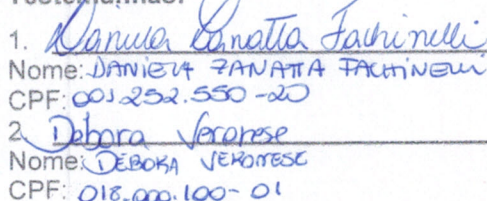 Testemunhas:
1. Daniela Zanatta Fachinelli
Nome: DANIELA ZANATTA FACHINELLI
CPF: 001.252.550-20
2. Debora Veronese
Nome: DÉBORA VERONESE
CPF: 018.000.100-01